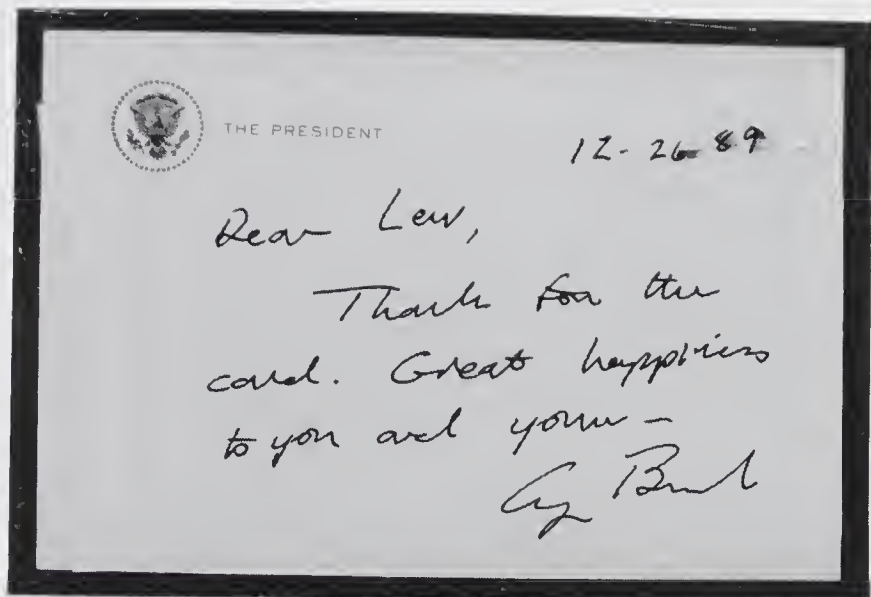 THE PRESIDENT
12-26-89
Dear Lew,
Thanks for the
card. Great happiness
to you and yours —
Bush